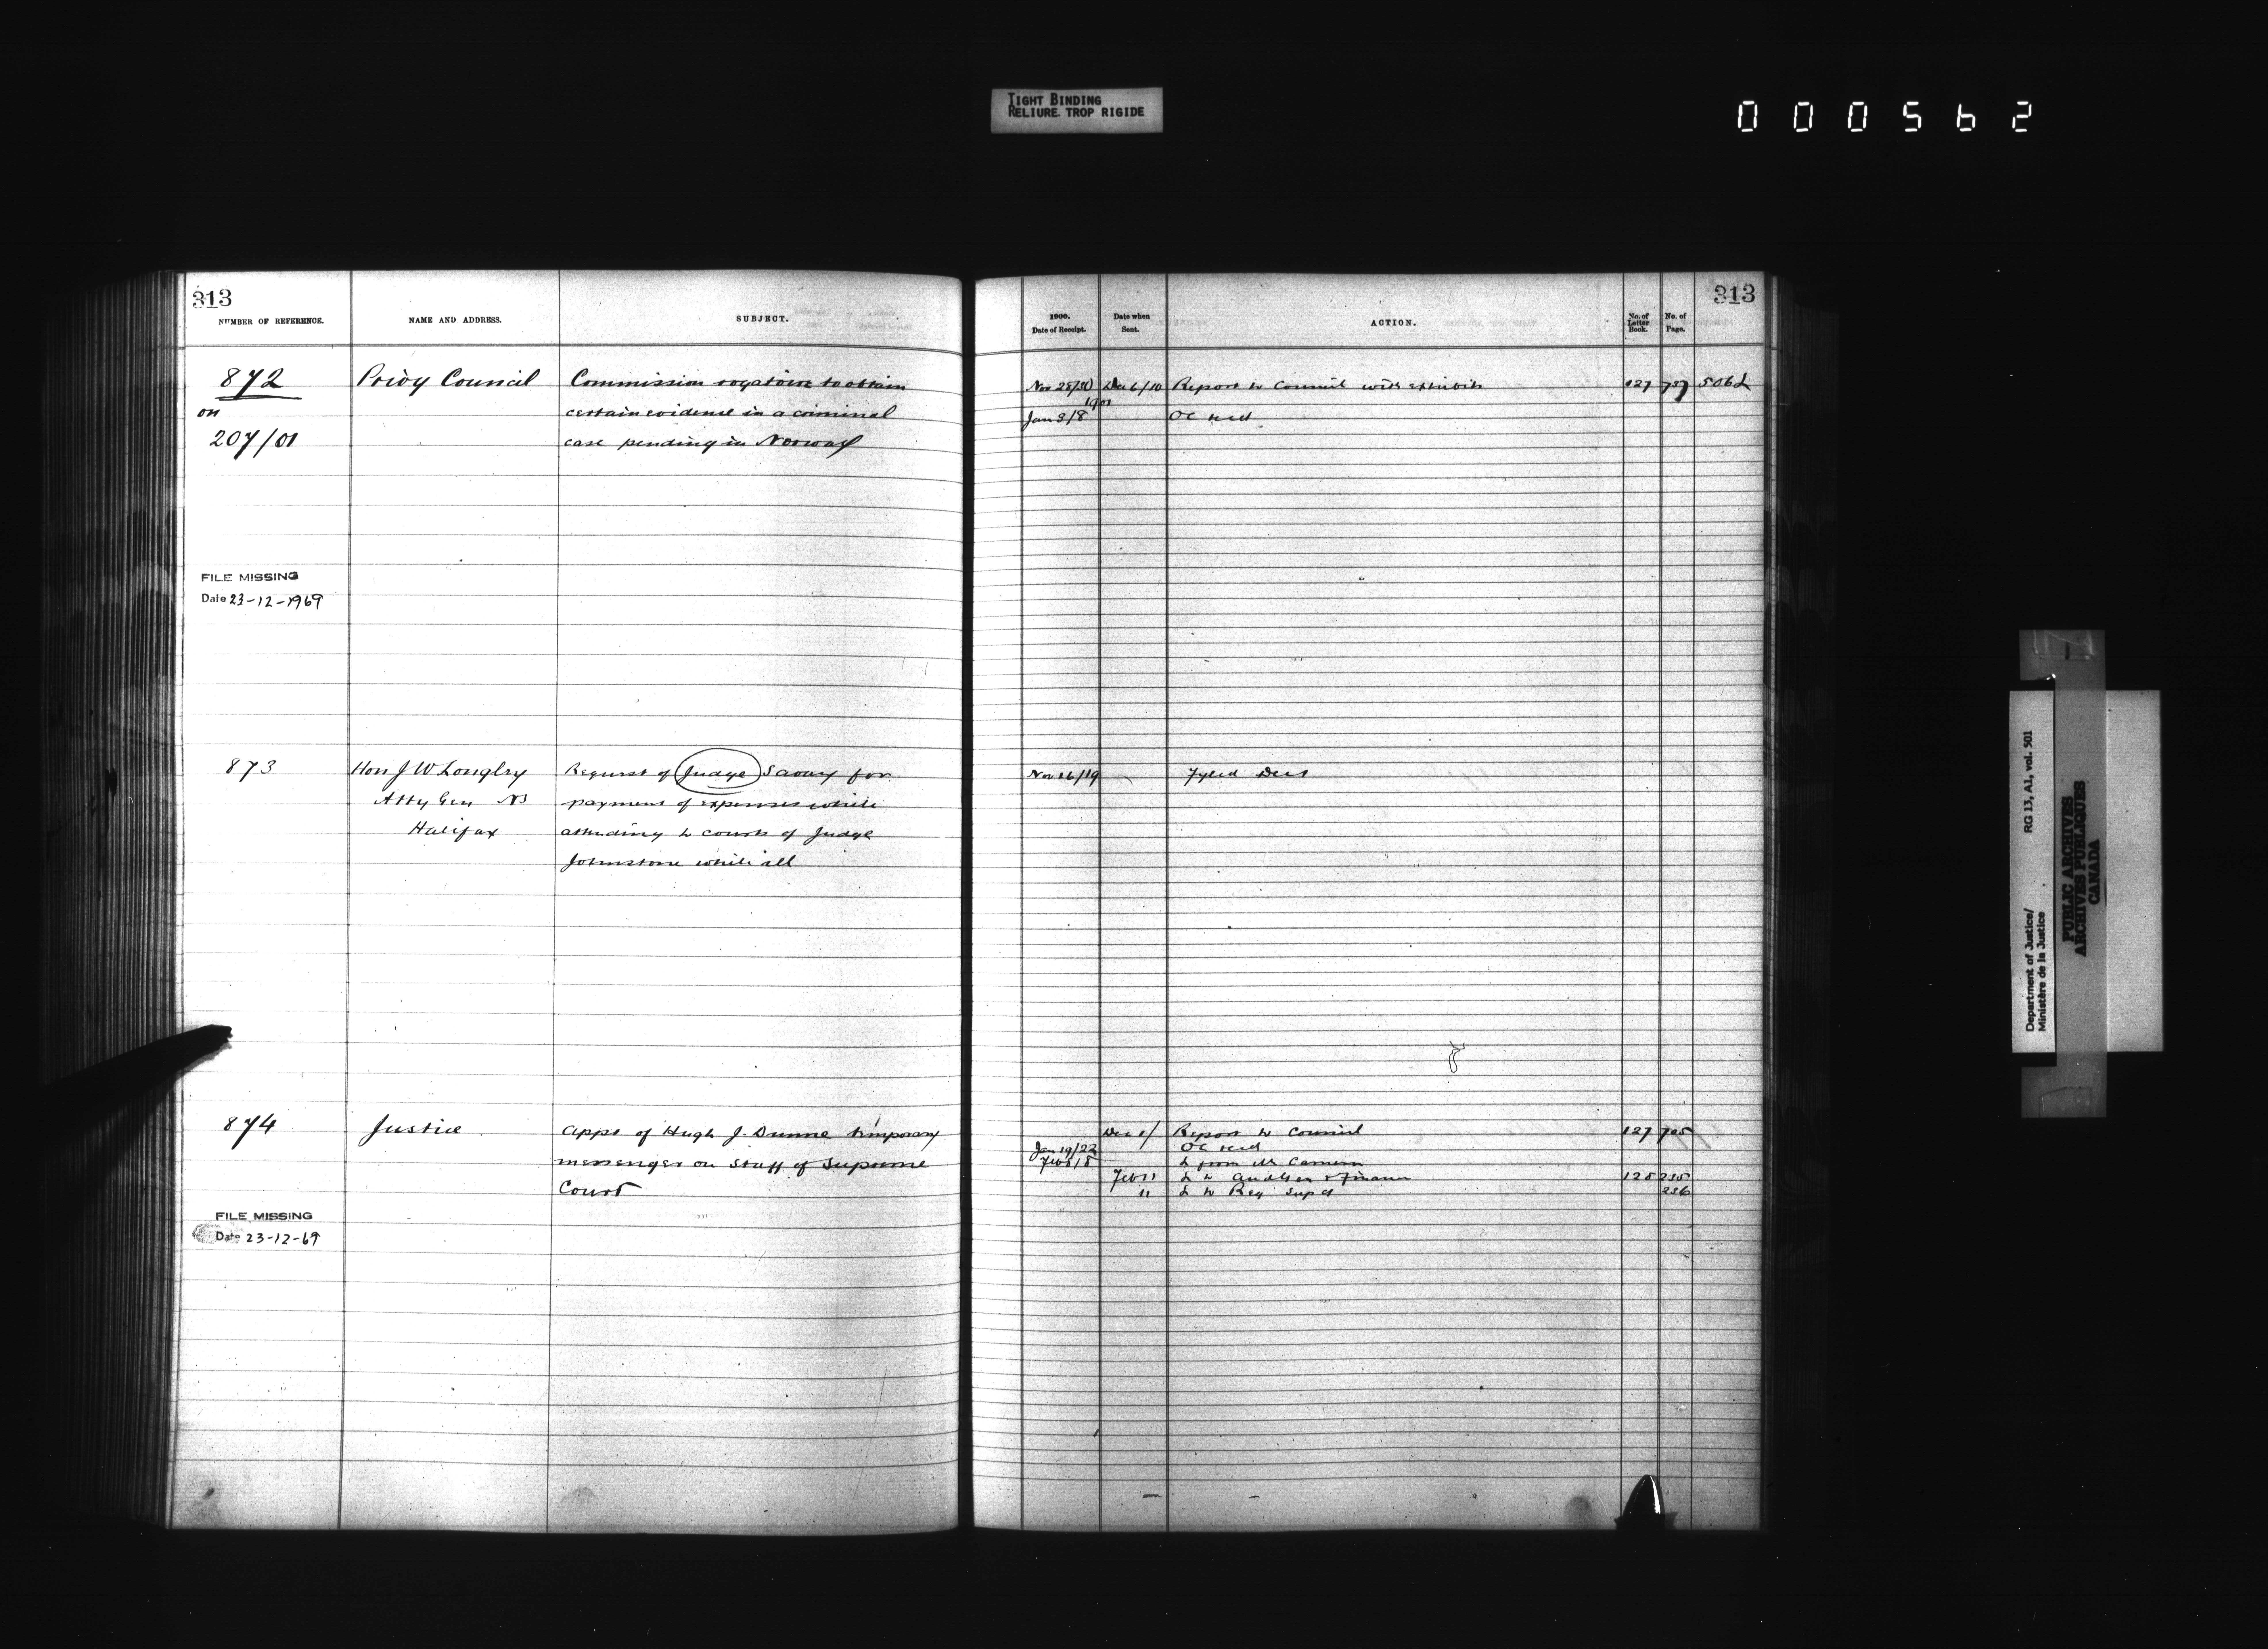 TIGHT BINDING
RELIURE TROP RIGIDE
000562
313
NUMBER OF REFERENCE.
NAME AND ADDRESS.
SUBJECT.
872
on
207/01
Privy Council
Commission rogatoire to obtain
certain evidence in a criminal
case pending in Norway
FILE MISSING
Date 23-12-1969
873
Hon J W Longley
Atty Gen NS
Halifax
Request of Judge Savary for
payment of expenses while
attending to courts of Judge
Johnstone while ill
874
Justice
Appt of Hugh J. Dunne temporary
messenger on staff of Supreme
Court
FILE MISSING
Date 23-12-69
313
1900.
Date of Receipt.
Date when
Sent.
ACTION.
No. of
Letter
Book.
No. of
Page.
Nov 28/30 Dec 6/10 Report to Council with exhibits 127 737
1901
Jan 3/8 OC recd
Nov 16/19
Dec 1/ Report to Council 127 705
Jan 19/22 OC recd
Feb 8/8 L from Mr Cameron
Feb 11 L to Aud Gen & Finance 128 235
11 L to Reg Sup Ct 236
Department of Justice/
Ministère de la Justice
RG 13, A1, vol. 501
PUBLIC ARCHIVES
ARCHIVES PUBLIQUES
CANADA